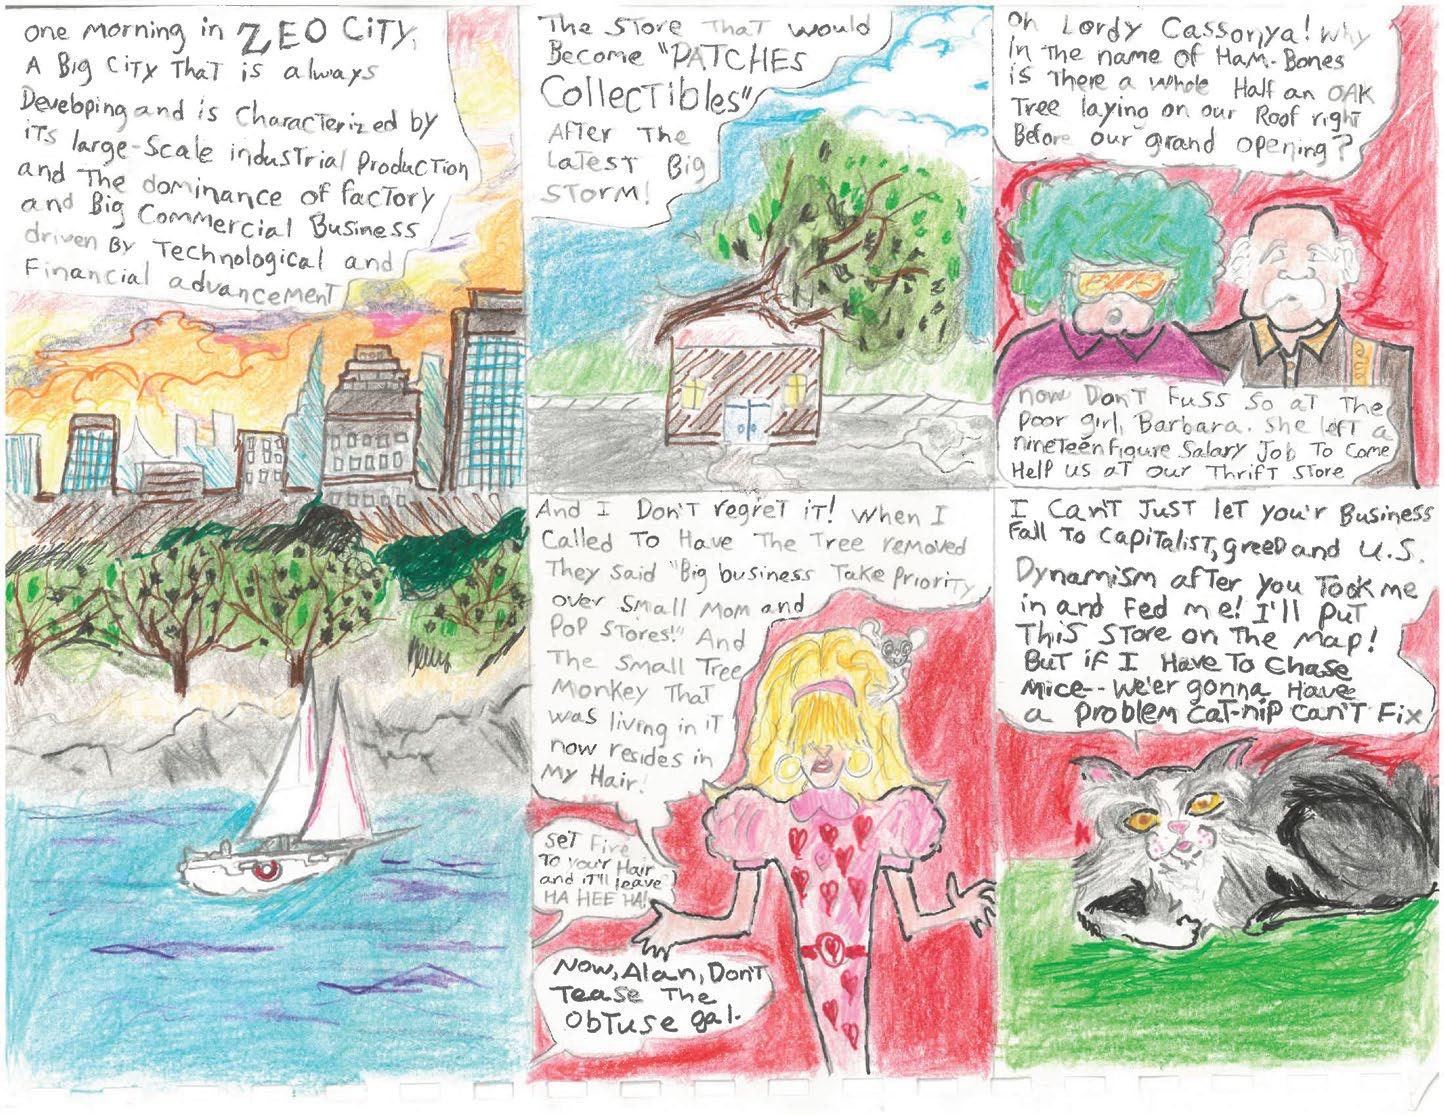 one morning in ZEO CiTY,
A Big CiTY ThaT is always
Developing and is characTerized by
iTs large-Scale indusTrial Production
and The dominance of facTory
and Big Commercial Business
driven By Technological and
Financial advancemenT
The STore ThaT would
Become "PATCHES
CollecTibles"
AfTer The
LaTesT Big
STorm!
Oh Lordy Cassonya! why
in The name of Ham-Bones
is There a whole Half an OAK
Tree laying on our Roof righT
Before our grand opening?
now Don'T Fuss So aT The
Poor girl, Barbara. She lefT a
nineTeen figure Salary Job To Come
Help us aT our ThrifT STore
And I Don'T regreT iT! When I
Called To Have The Tree removed
They said "Big business Take Priority
over Small Mom and
Pop STores!" And
The Small Tree
Monkey ThaT
was living in iT
now resides in
My Hair!
SeT Fire
To your Hair
and iT'll leave
HA HEE HA!
Now, Alan, Don'T
Tease The
ObTuse gal.
I Can'T JusT leT you'r Business
Fall To CapiTalisT, greeD and U.S.
Dynamism afTer you Took me
in and Fed me! I'll PuT
This STore on The Map!
BuT if I Have To Chase
Mice-- we'er gonna Have
a problem CaT-nip Can'T Fix